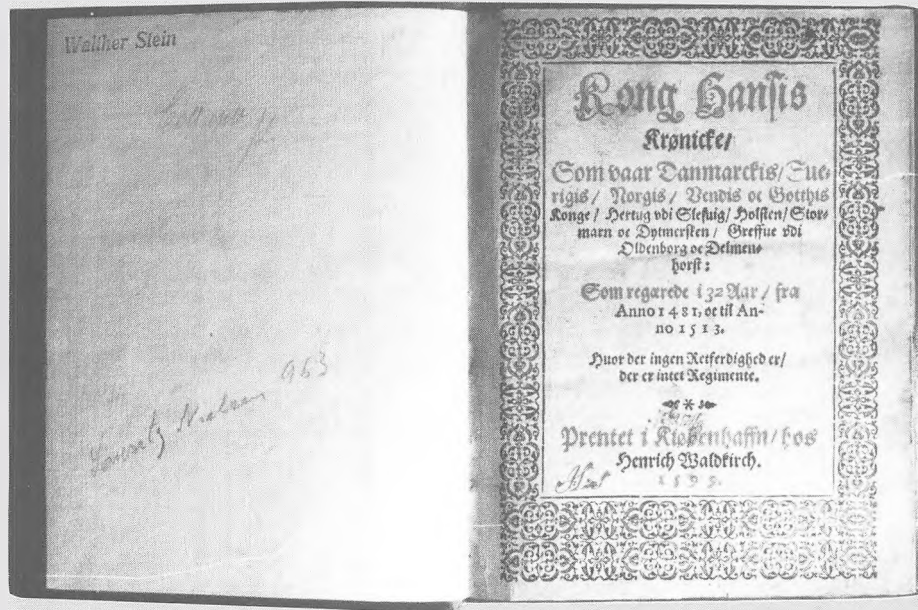 Walther Stein
Lauritz Nielsen 963
Kong Hansis
Krønicke/
Som vaar Danmarckis/ Sue-
rigis/ Norgis/ Vendis oc Gotthis
Konge/ Hertug vdi Slesuig/ Holsten/ Stor-
marn oc Dytmersken/ Greffue vdi
Oldenborg oc Delmen-
horst:
Som regærede i 32 Aar/ fra
Anno 1481, oc til An-
no 1513.
Huor der ingen Retferdighed er/
der er intet Regimente.
*
Prentet i Kiøbenhaffn/ hos
Henrich Waldkirch.
1599.